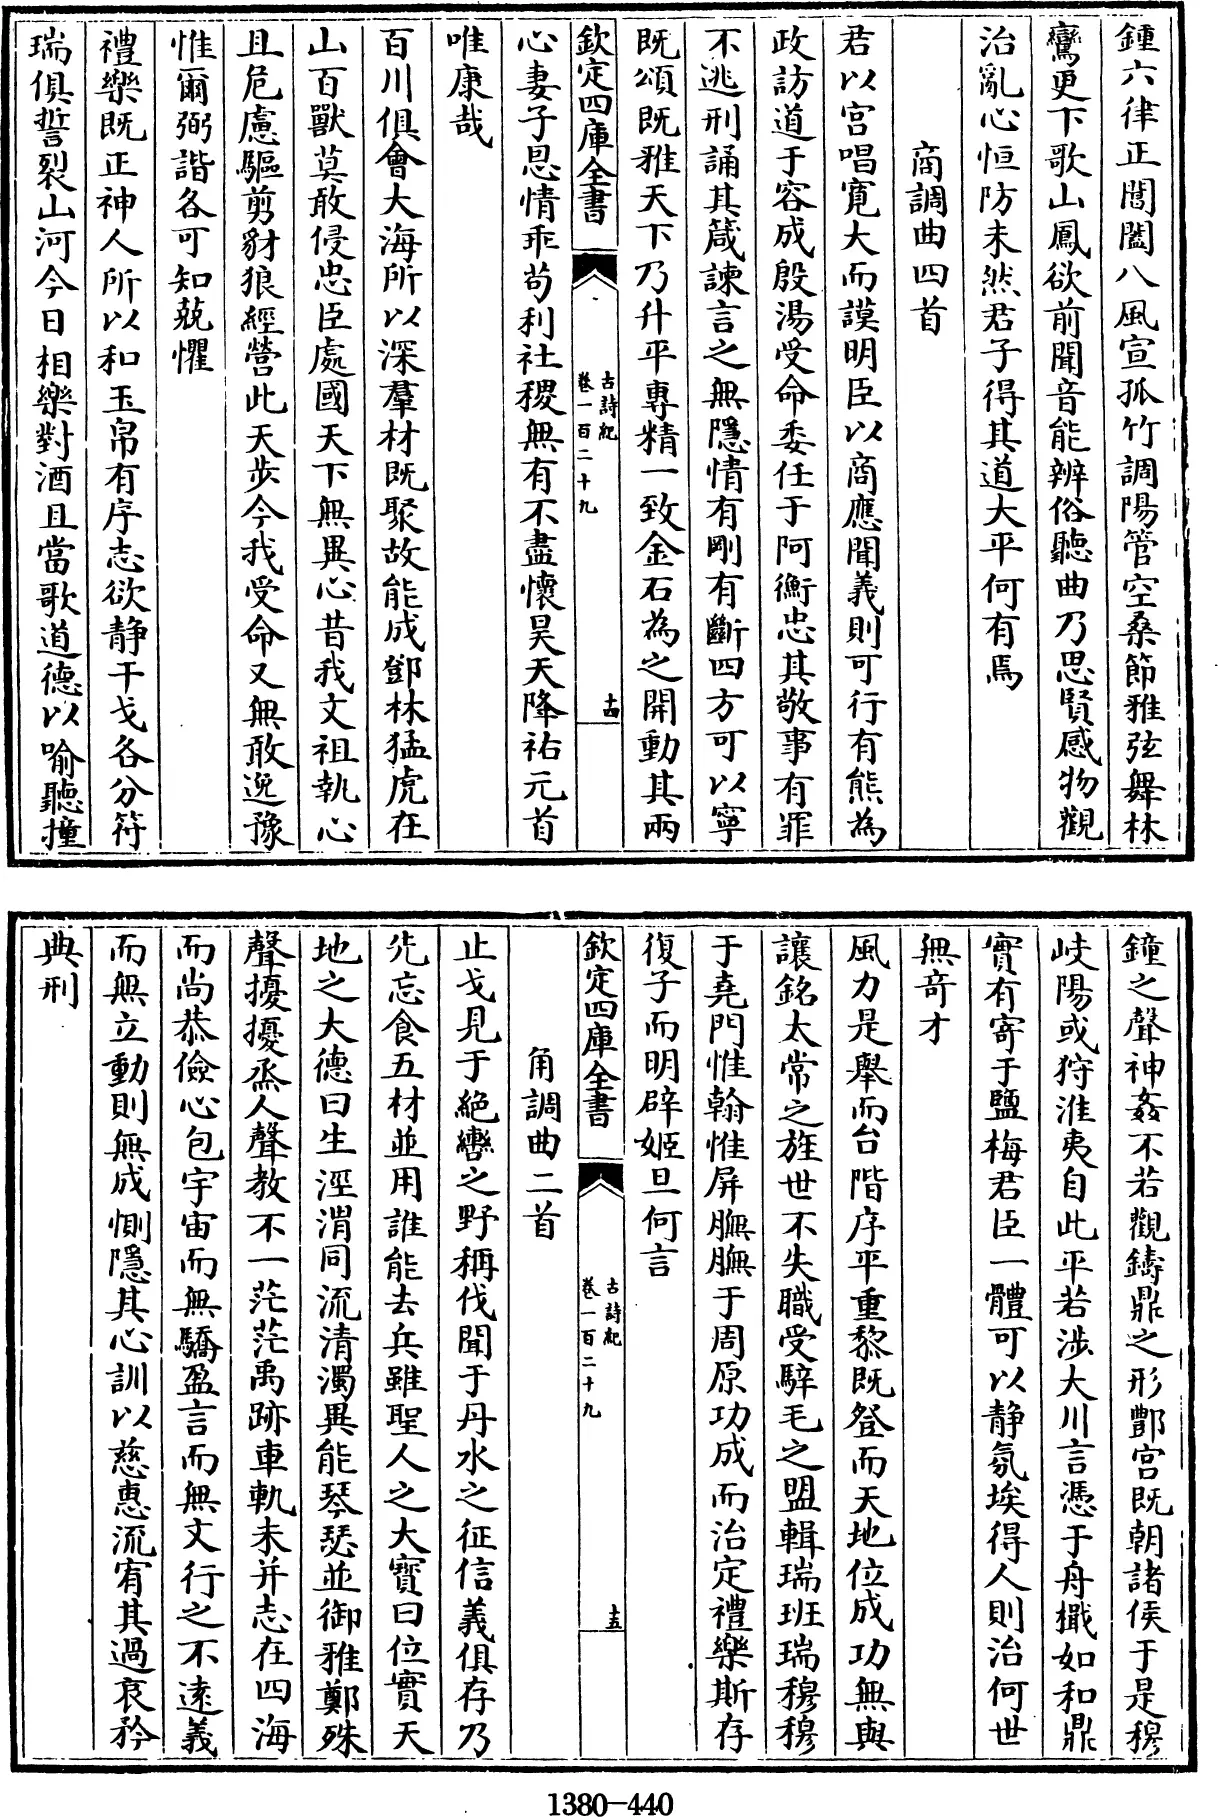 鍾六律正閶闔八風宣孤竹調陽管空桑節雅弦舞林
鸞更下歌山鳳欲前聞音能辨俗聽曲乃思賢感物觀
治亂心恒防未然君子得其道大平何有焉
商調曲四首
君以宫唱寛大而謨明臣以商應聞義則可行有熊為
政訪道于容成殷湯受命委任于阿衡忠其敬事有罪
不逃刑誦其箴諫言之無隱情有剛有斷四方可以寧
既頌既雅天下乃升平專精一致金石為之開動其兩
欽定四庫全書
古詩紀
卷一百二十九
十四
心妻子恩情乖苟利社稷無有不盡懷昊天降祐元首
唯康哉
百川俱會大海所以深羣材既聚故能成鄧林猛虎在
山百獸莫敢侵忠臣處國天下無異心昔我文祖執心
且危慮驅剪豺狼經營此天步今我受命又無敢逸豫
惟爾弼諧各可知兢懼
禮樂既正神人所以和玉帛有序志欲静干戈各分符
瑞俱誓裂山河今日相樂對酒且當歌道德以喻聽撞
鐘之聲神姦不若觀鑄鼎之形酆宫既朝諸侯于是穆
岐陽或狩淮夷自此平若涉大川言憑于舟檝如和鼎
實有寄于鹽梅君臣一體可以静氛埃得人則治何世
無竒才
風力是舉而台階序平重黎既登而天地位成功無與
讓銘太常之旌世不失職受騂毛之盟輯瑞班瑞穆穆
于堯門惟翰惟屏膴膴于周原功成而治定禮樂斯存
復子而明辟姬旦何言
欽定四庫全書
古詩紀
卷一百二十九
十五
角調曲二首
止戈見于絶轡之野稱伐聞于丹水之征信義俱存乃
先忘食五材並用誰能去兵雖聖人之大寶曰位實天
地之大德曰生涇渭同流清濁異能琴瑟並御雅鄭殊
聲擾擾烝人聲教不一茫茫禹跡車軌未并志在四海
而尚恭儉心包宇宙而無驕盈言而無文行之不遠義
而無立動則無成惻隱其心訓以慈惠流宥其過哀矜
典刑
1380-440